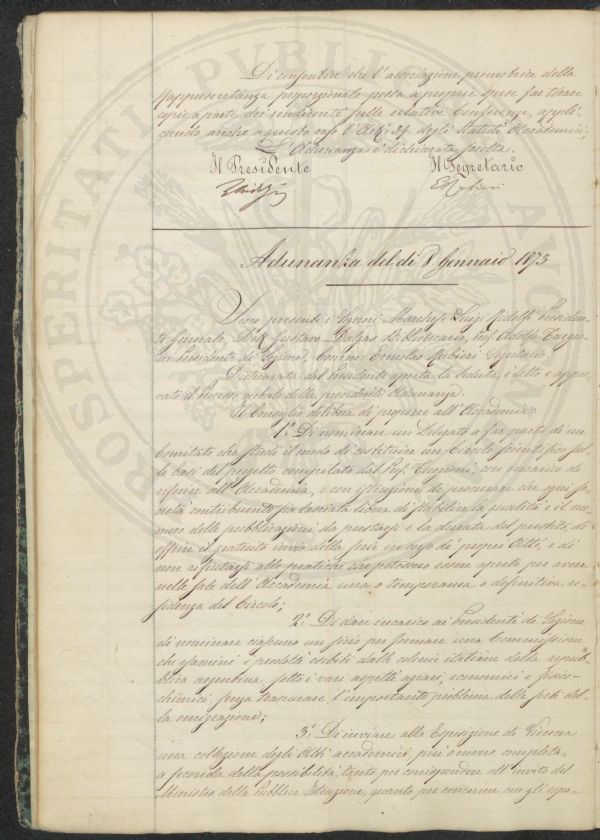 Di consentire che l'associazione promotrice della
Rappresentanza proporzionale possa a proprie spese far tirare
copie a parte dei rendiconti sulle relative Conferenze, appli-
cando anche a questo caso l'Art: 34. degli Statuti Accademici;
L'Adunanza è dichiarata sciolta.
Il Presidente Il Segretario
Adunanza del dì 8 Gennaio 1873
Sono presenti i Signori Marchese Luigi Ridolfi Presiden-
te Generale, Dott. Gustavo Dalgas Bibliotecario, Prof. Adolfo Targio-
ni Presidente di Sezione, Ernesto Rubieri Segretario.
Dichiarata dal Presidente aperta la seduta, è letto e appro-
vato il Processo verbale della precedente Adunanza.
Il Consiglio delibera di proporre all'Accademia:
1.° Di nominare un Delegato a far parte di un
Comitato che studi il modo di costituire un Circolo scientifico sul-
le basi del progetto compilato dal Prof. Targioni, con incarico di
riferire all'Accademia, e con istruzione di procurare che ogni so-
cietà contribuente sia lasciata libera di stabilire la qualità e il nu-
mero delle pubblicazioni da prestarsi e la durata del prestito, di
offrire il gratuito invio della serie in corso de' propri Atti, e di
non rifiutarsi alle pratiche che potessero essere aperte per avere
nelle sale dell'Accademia una o temporanea o definitiva re-
sidenza del Circolo;
2.° Di dare incarico ai Presidenti di Sezione
di nominare ciascuno un socio per formare una Commissione
che esamini i prodotti esibiti dalle colonie italiane della repub-
blica argentina sotto i vari aspetti agrari, economici e fisico-
chimici senza trascurare l'importante problema della sorte del-
la emigrazione;
3.° Di inviare alla Esposizione di Vienna
una collezione degli Atti accademici più o meno completa,
a seconda della possibilità, tanto per corrispondere all'invito del
Ministro della Pubblica Istruzione, quanto per concorrere con gli espo-
PROSPERITATI PUBLICAE